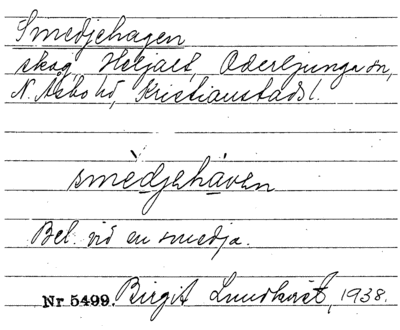 Smedjehagen
skog, Heljalt, Oderljunga sn,
N. Åsbo hd, Kristianstads l.
smèdjeháven
Bel. vid en smedja.
Nr 5499. Birgit Lundkvist, 1938.